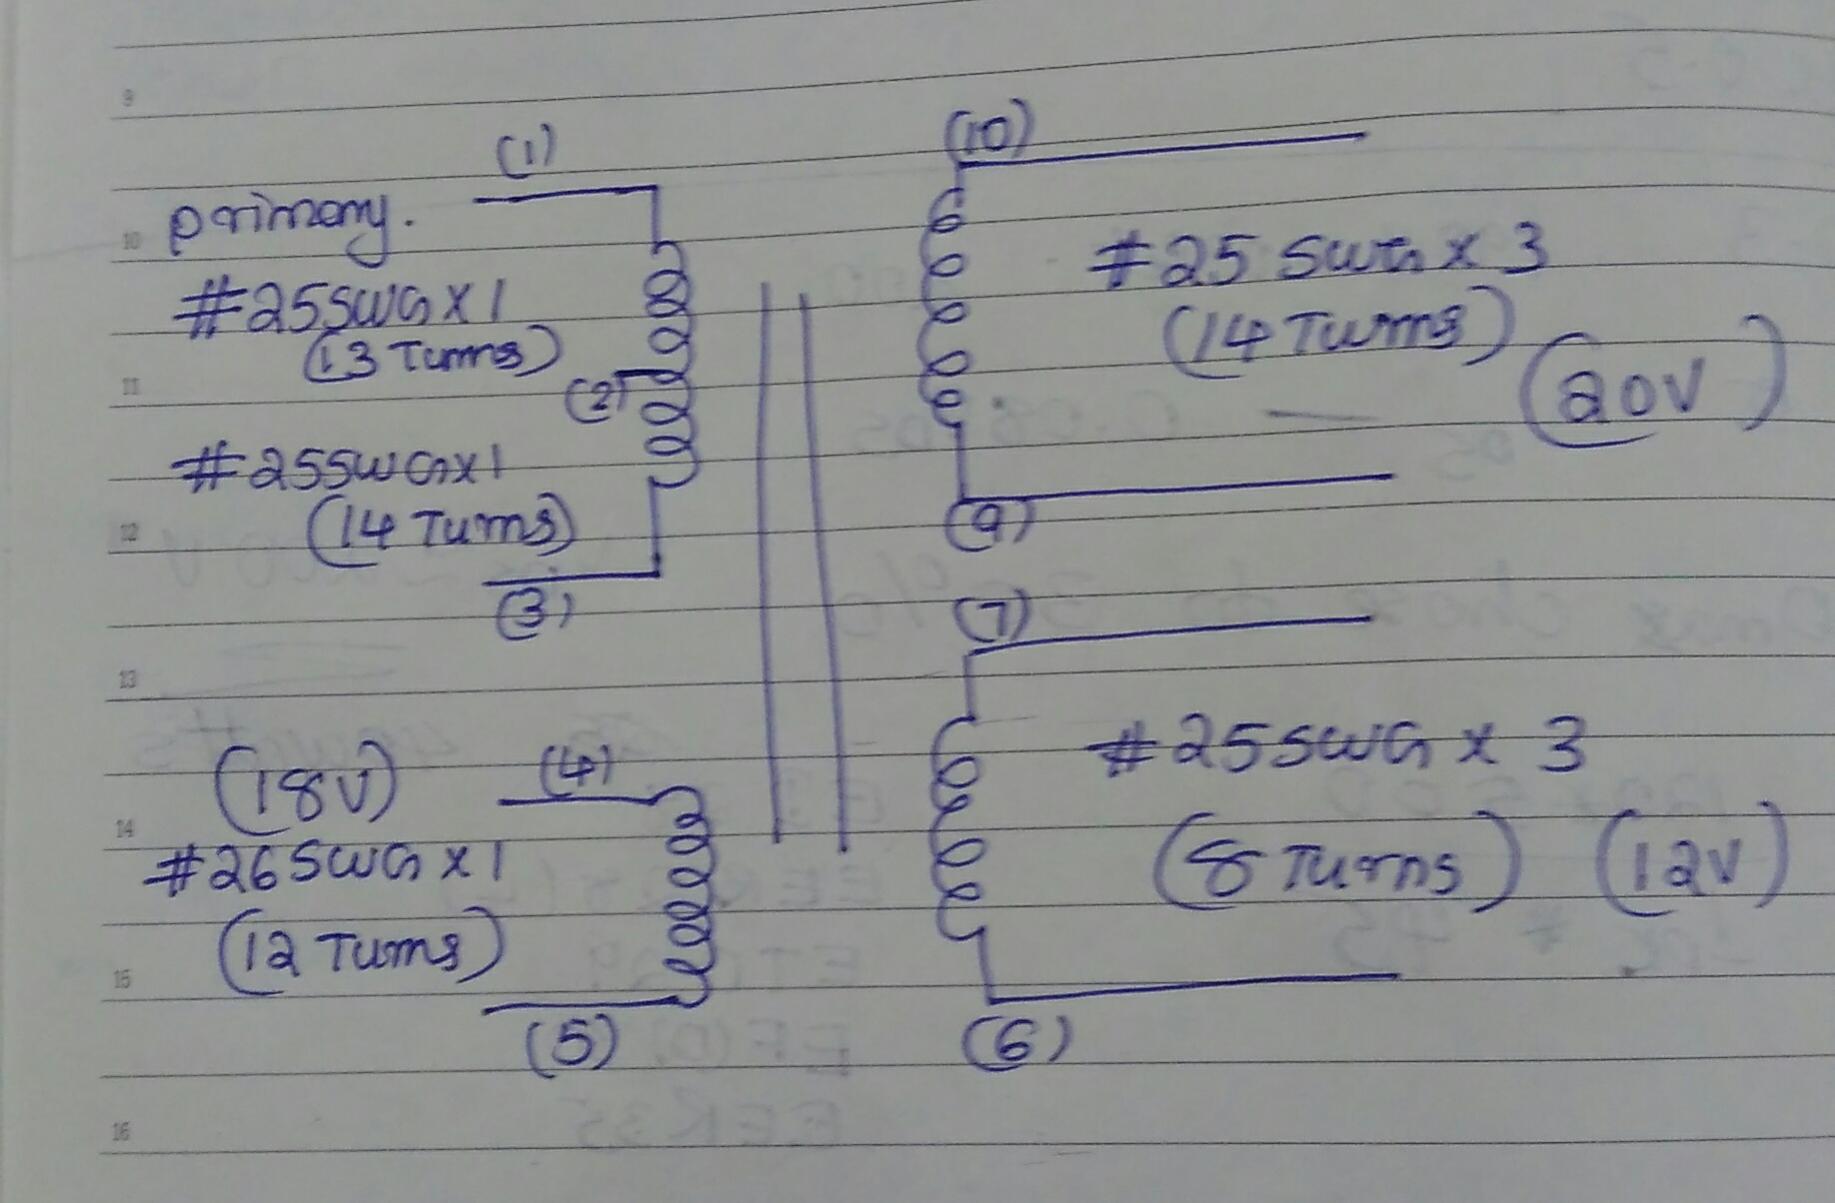 (1)
primary.
#25SWG X 1
(13 Turns)
(2)
#25SWG X 1
(14 Turns)
(3)
(18V)
(4)
#26 SWG X 1
(12 Turns)
(5)
(10)
#25 SWG X 3
(14 Turns)
(20V)
(9)
(7)
#25 SWG X 3
(8 Turns) (12V)
(6)
9
10
11
12
13
14
15
16